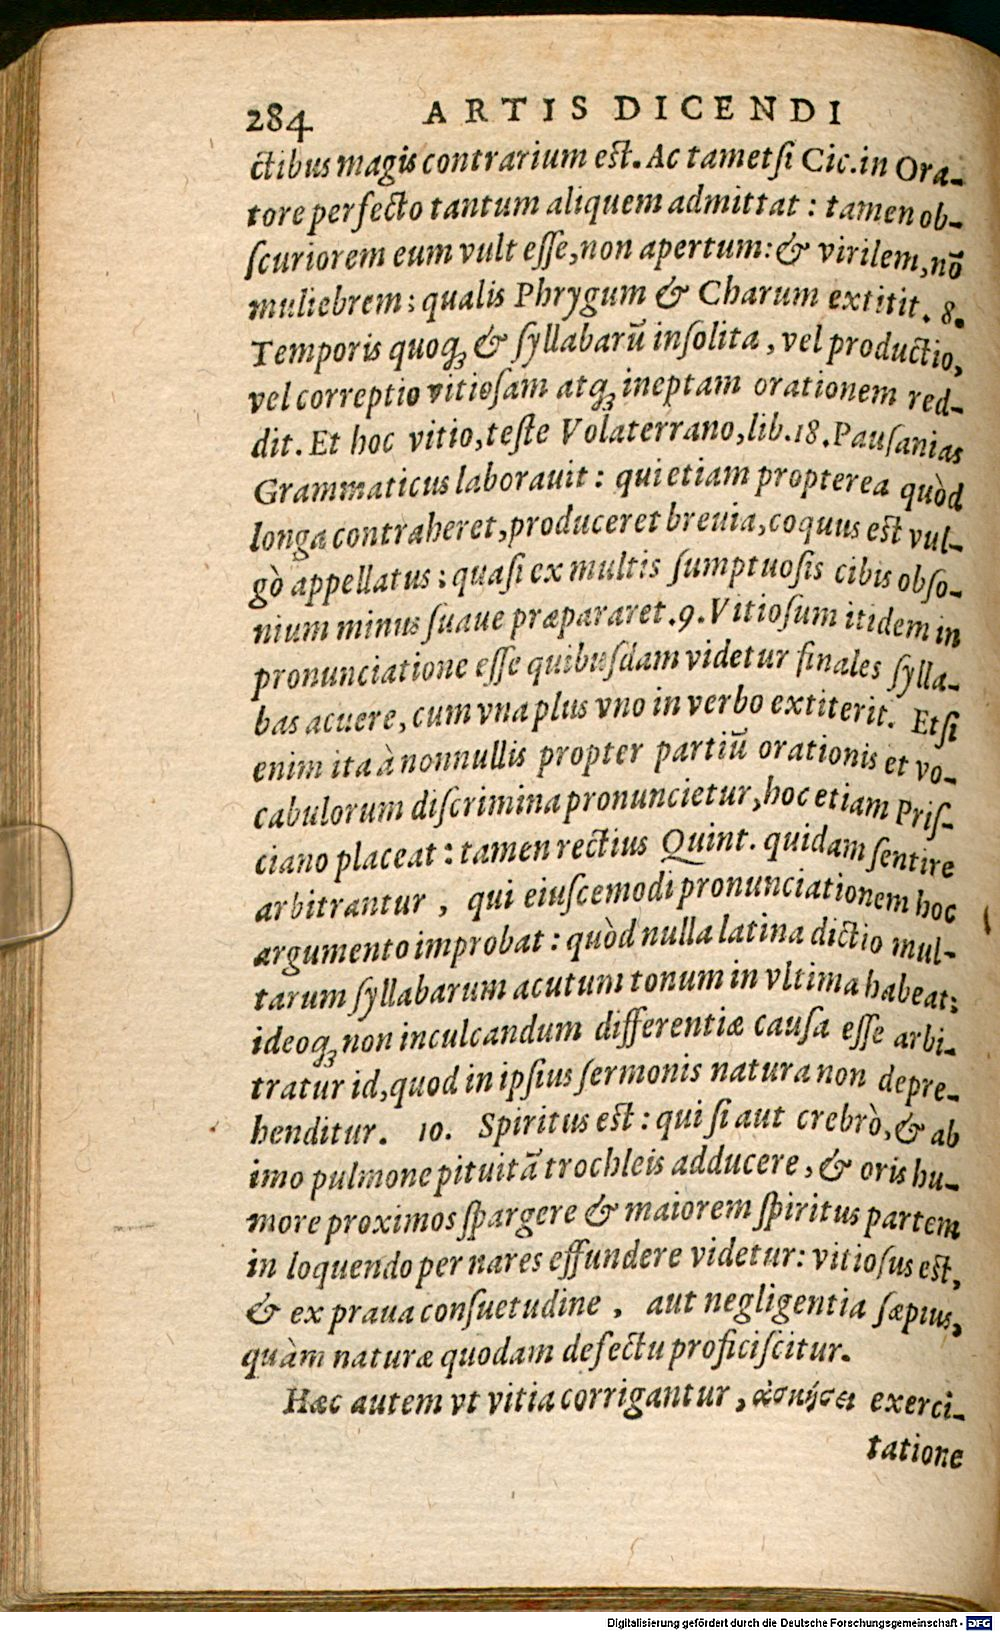 284 ARTIS DICENDI
ctibus magis contrarium est. Ac tametſi Cic. in Ora-
tore perfecto tantum aliquem admittat : tamen ob-
ſcuriorem eum vult eſſe, non apertum: & virilem, nō
muliebrem : qualis Phrygum & Charum extitit. 8.
Temporis quoqꝫ & ſyllabarū inſolita , vel productio,
vel correptio vitioſam atqꝫ ineptam orationem red-
dit. Et hoc vitio, teſte Volaterrano, lib. 18. Pauſanias
Grammaticus laborauit : qui etiam propterea quòd
longa contraheret, produceret breuia, coquus est vul-
gò appellatus : quaſi ex multis ſumptuoſis cibis obſo-
nium minus ſuaue præpararet. 9. Vitioſum itidem in
pronunciatione eſſe quibuſdam videtur finales ſylla-
bas acuere, cum vna plus vno in verbo extiterit. Etſi
enim ita à nonnullis propter partiū orationis et vo-
cabulorum diſcrimina pronuncietur, hoc etiam Priſ-
ciano placeat : tamen rectius Quint. quidam ſentire
arbitrantur , qui eiuſcemodi pronunciationem hoc
argumento improbat : quòd nulla latina dictio mul-
tarum ſyllabarum acutum tonum in vltima habeat:
ideoqꝫ non inculcandum differentiæ cauſa eſſe arbi-
tratur id, quod in ipſius ſermonis natura non depre-
henditur. 10. Spiritus est : qui ſi aut crebrò, & ab
imo pulmone pituitā trochleis adducere , & oris hu-
more proximos ſpargere & maiorem ſpiritus partem
in loquendo per nares effundere videtur: vitioſus est,
& ex praua conſuetudine , aut negligentia ſæpius,
quàm naturæ quodam defectu proficiſcitur.
Hæc autem vt vitia corrigantur , ἀσκήσει exerci-
tatione
Digitalisierung gefördert durch die Deutsche Forschungsgemeinschaft - DFG